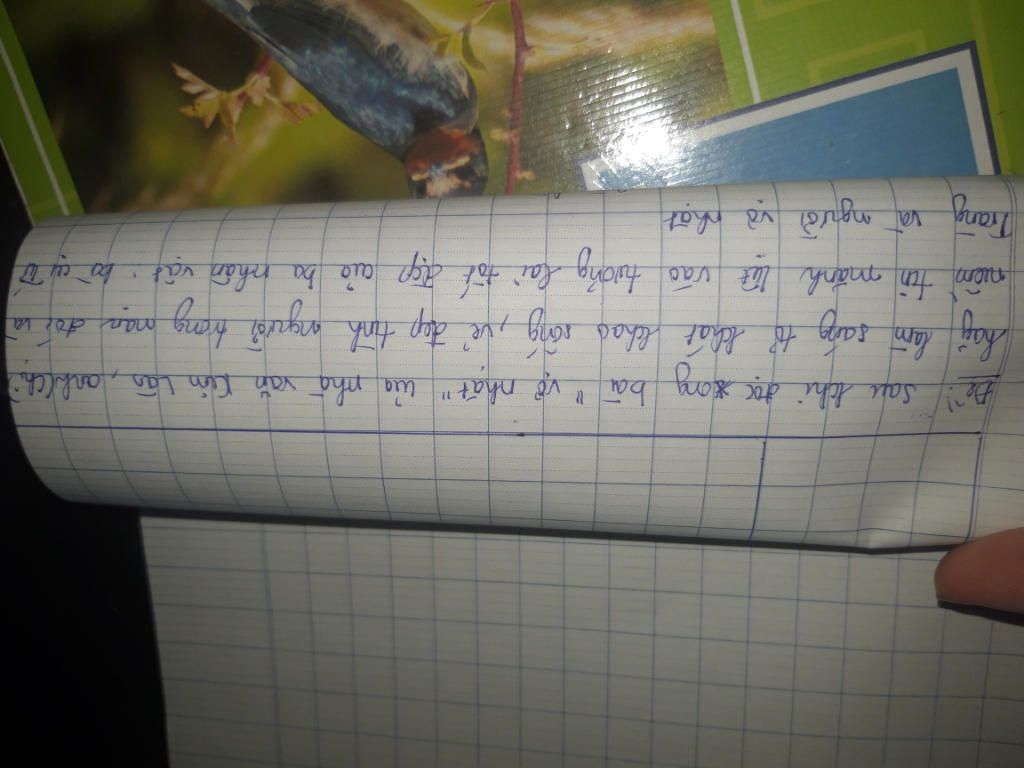 Đề: Sau khi đọc xong bài "vợ nhặt" của nhà văn Kim Lân, anh(chị)
hãy làm sáng tỏ khát khao sống, vẻ đẹp tình người trong nạn đói và
niềm tin mãnh liệt vào tương lai tốt đẹp của ba nhân vật: bà cụ Tứ
Tràng và người vợ nhặt